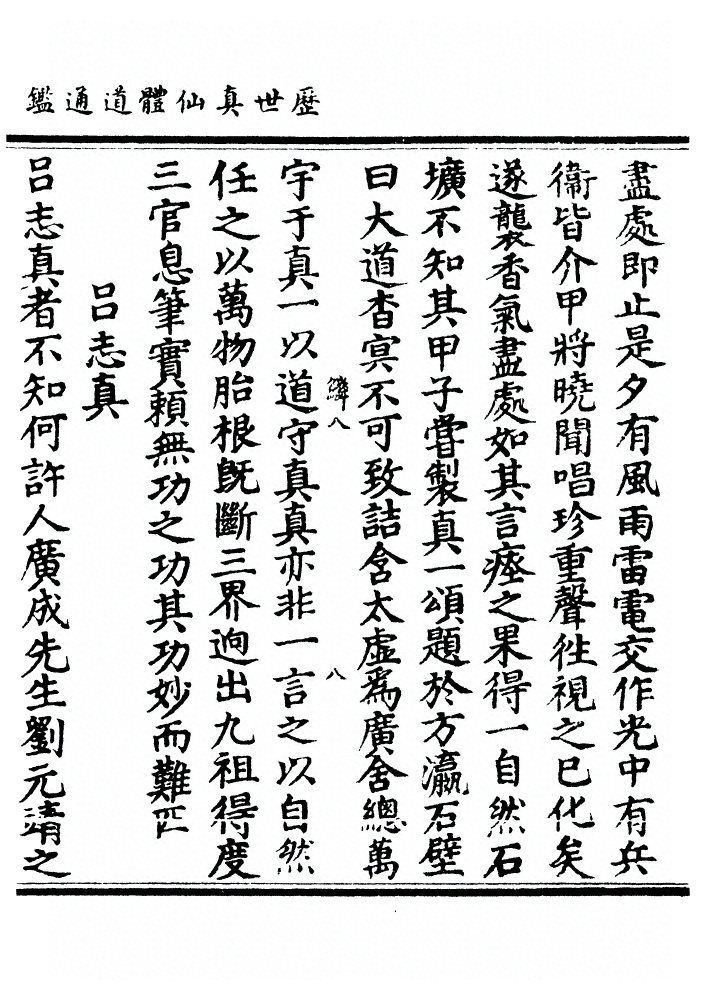 歷世真仙體道通鑑
盡處即止是夕有風雨雷電交作光中有兵
衛皆介甲將曉聞唱珍重聲徃視之已化矣
遂襲香氣盡處如其言瘞之果得一自然石
壙不知其甲子嘗製真一頌題於方瀛石壁
曰大道杳冥不可致詰含太虛爲廣舍總萬
鱗八
八
宇于真一以道守真真亦非一言之以自然
任之以萬物胎根旣斷三界逈出九祖得度
三官息筆實賴無功之功其功妙而難匹
吕志真
吕志真者不知何許人廣成先生劉元靖之